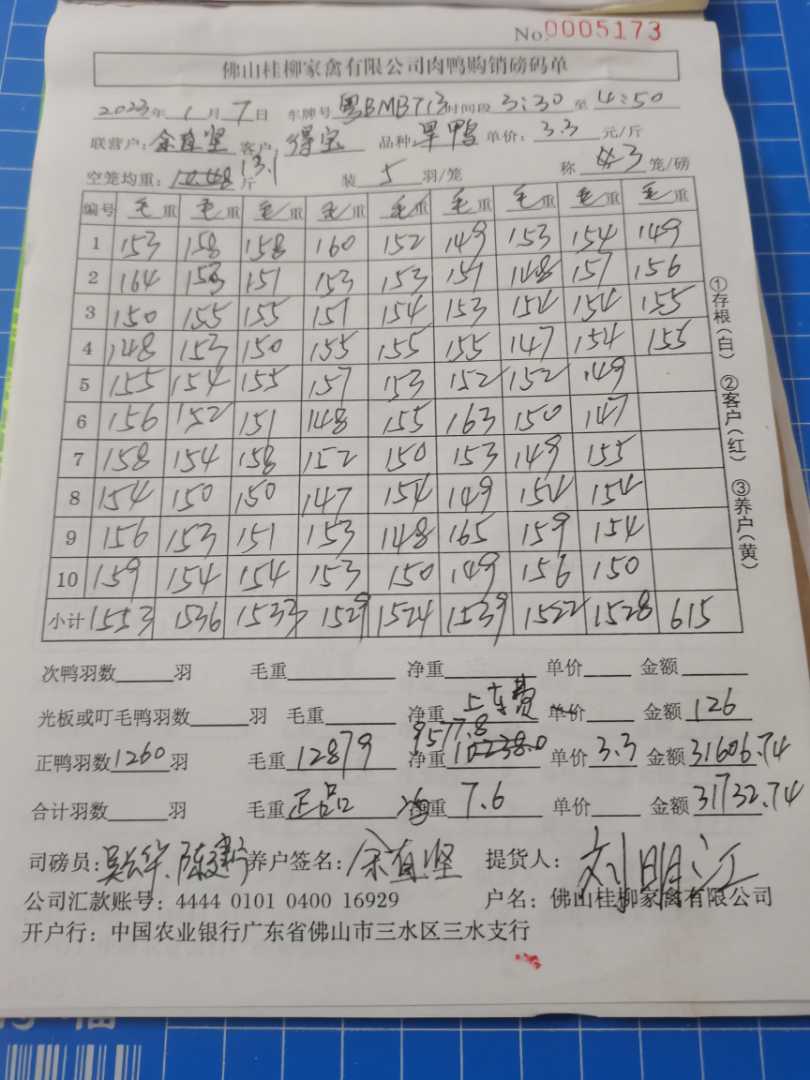 No.0005173
佛山桂柳家禽有限公司肉鸭购销磅码单
2023年 1月 7日 车牌号 粤BMB713 时间段 3:30 至 4:50
联营户: 余直坚 客户: 得宝 品种 旱鸭 单价: 3.3 元/斤
空笼均重: 13.1 斤 装 5 羽/笼 称 3 笼/磅
编号 毛重 毛重 毛重 毛重 毛重 毛重 毛重 毛重 毛重
1 153 158 158 160 152 149 153 154 149
2 164 153 151 153 153 151 148 157 156
3 150 155 155 151 154 153 154 154 155
4 148 153 150 155 155 155 147 154 155
5 155 154 155 157 153 152 152 149
6 156 152 151 148 155 163 150 147
7 158 154 158 152 150 153 149 155
8 154 150 150 147 154 149 154 154
9 156 153 151 153 148 165 159 154
10 159 154 154 153 150 149 156 150
小计 1553 1536 1533 1529 1524 1539 1522 1528 615
①存根(白) ②客户(红) ③养户(黄)
次鸭羽数 羽 毛重 净重 单价 金额
光板或叮毛鸭羽数 羽 毛重 净重 上车费 单价 金额 126
正鸭羽数 1260 羽 毛重 12879 净重 9577.8 10238.0 单价 3.3 金额 31606.74
合计羽数 羽 毛重 正品 净重 7.6 单价 金额 31732.74
司磅员: 养户签名: 余直坚 提货人: 刘明江
公司汇款账号: 4444 0101 0400 16929 户名: 佛山桂柳家禽有限公司
开户行: 中国农业银行广东省佛山市三水区三水支行